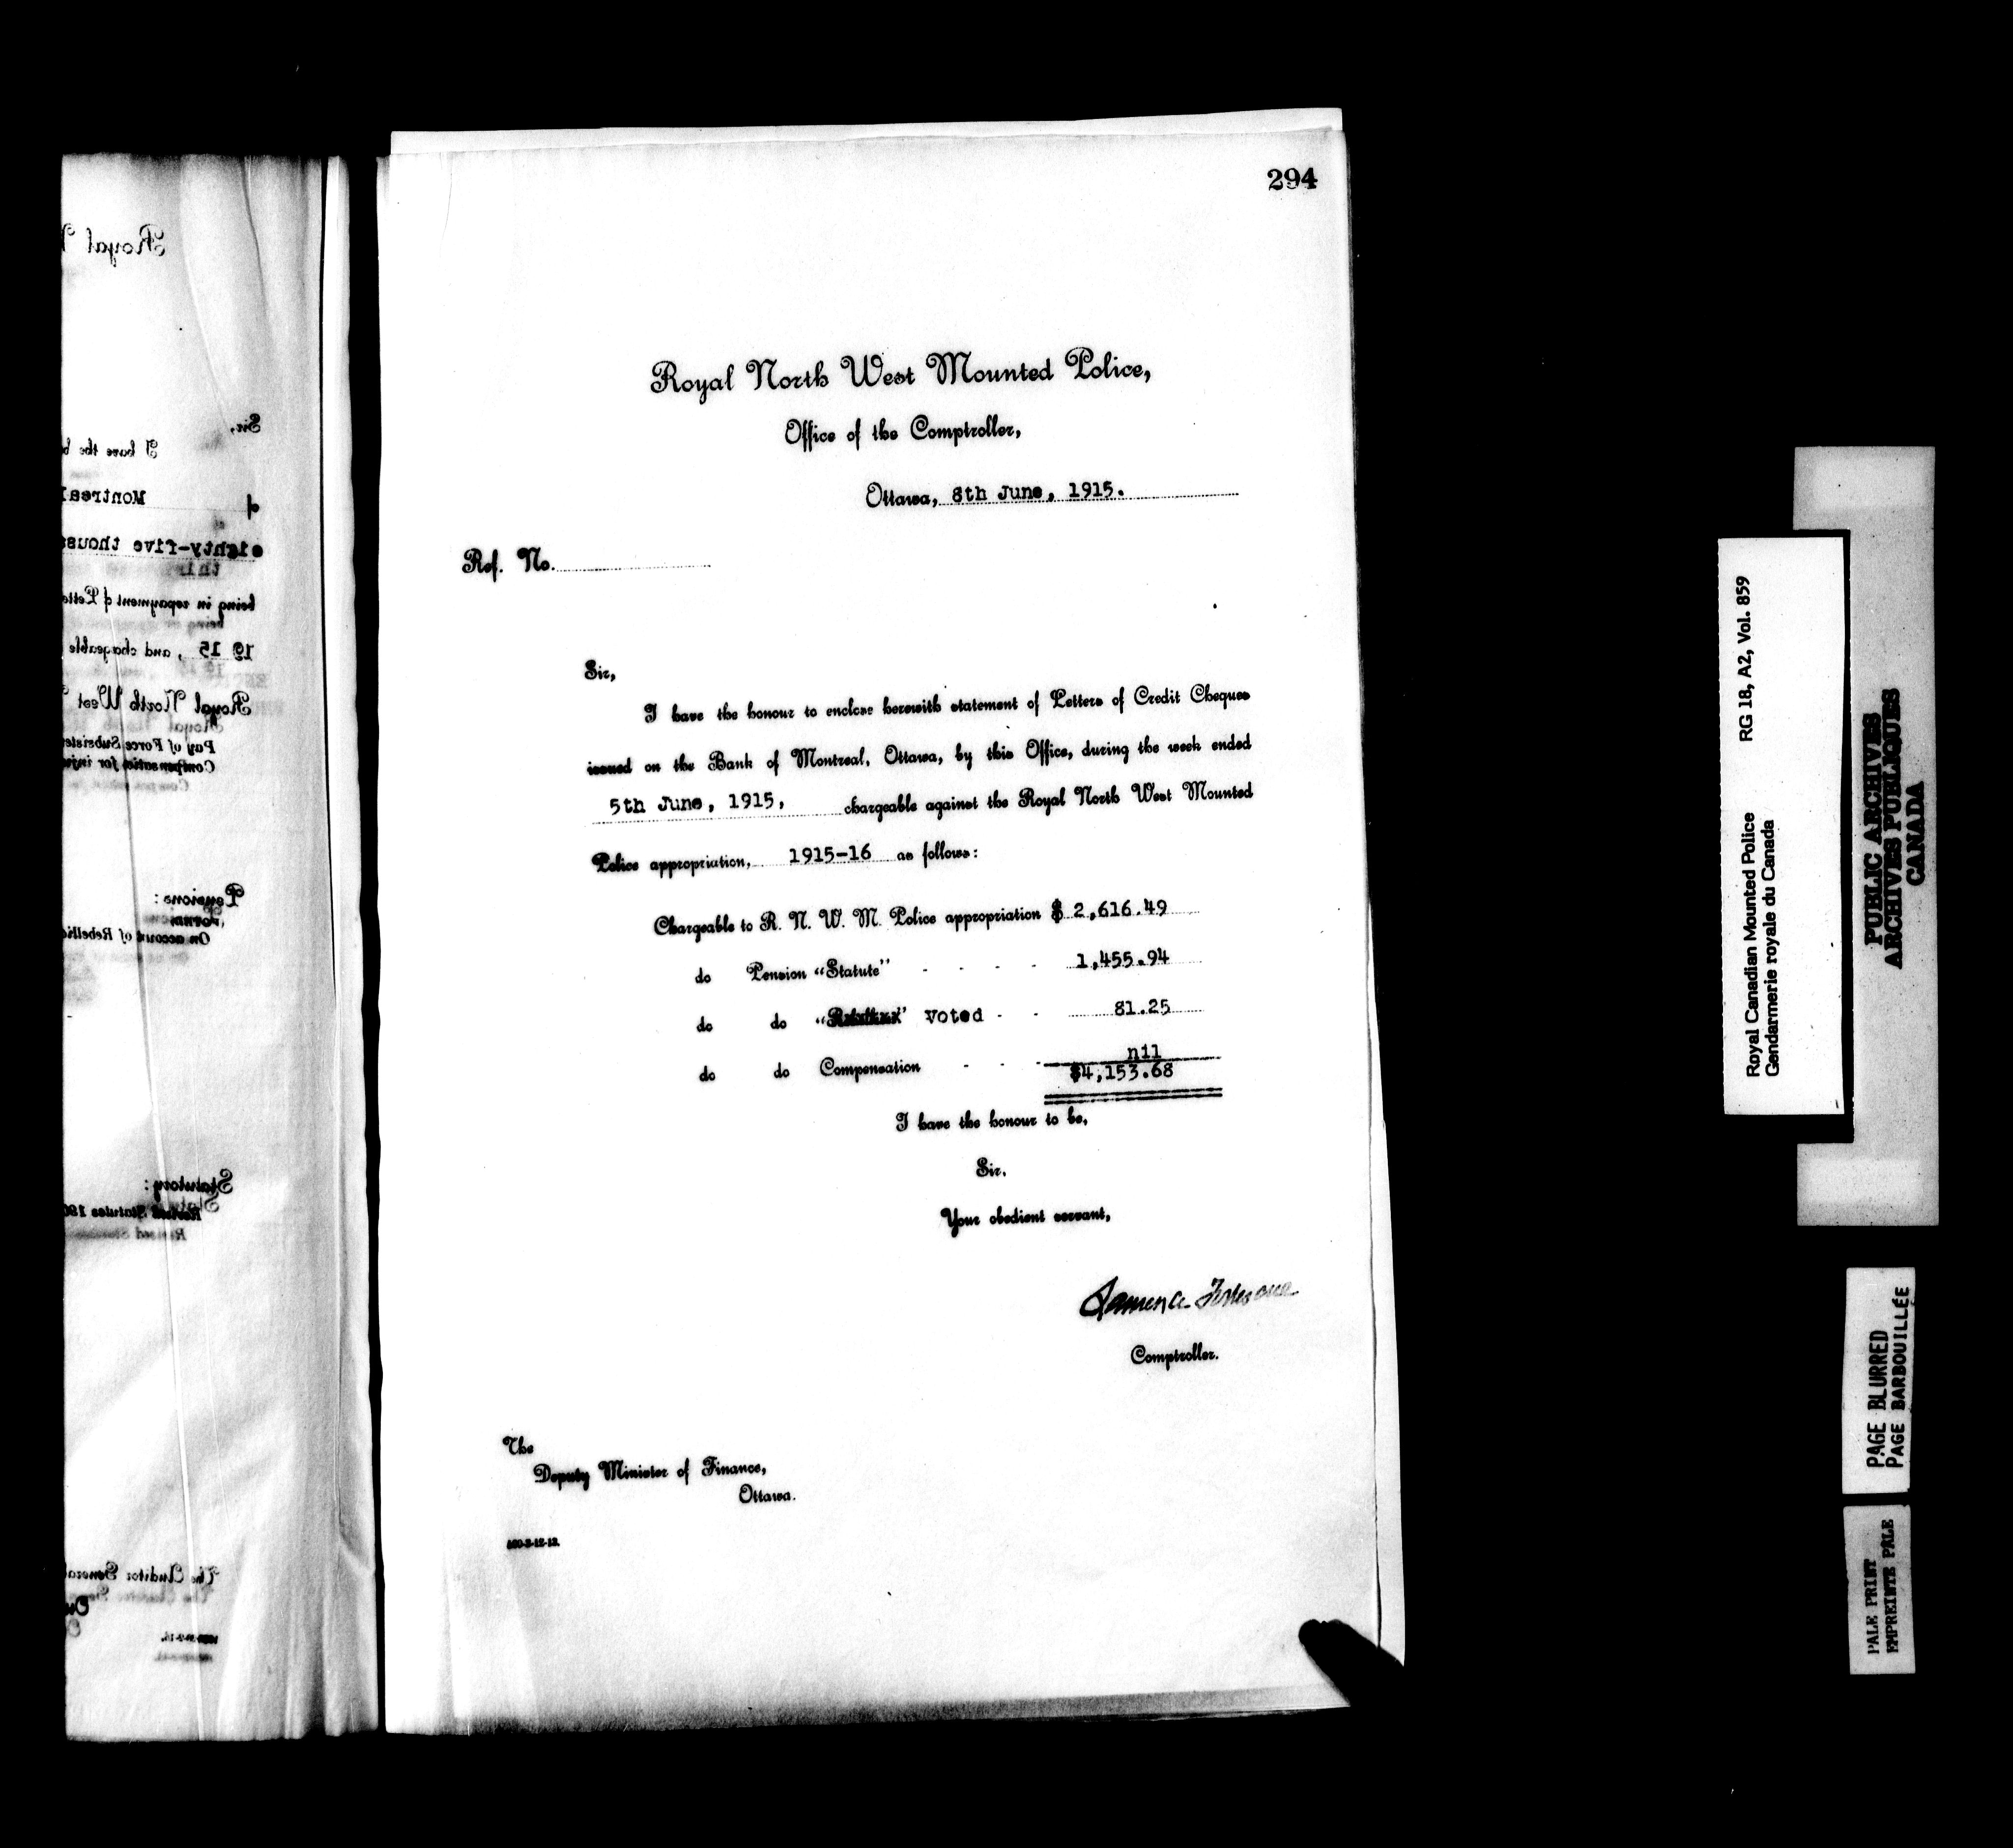 294
Royal North West Mounted Police,
Office of the Comptroller,
Ottawa, 8th June, 1915.
Ref. No.
Sir,
I have the honour to enclose herewith statement of Letters of Credit Cheques
issued on the Bank of Montreal, Ottawa, by this Office, during the week ended
5th June, 1915, chargeable against the Royal North West Mounted
Police appropriation, 1915-16 as follows:
Chargeable to R. N. W. M. Police appropriation $ 2,616.49
do Pension "Statute" - - - - 1,455.94
do do " " Voted - - 81.25
do do Compensation - - - nil
$4,153.68
I have the honour to be,
Sir,
Your obedient servant,
Comptroller.
The
Deputy Minister of Finance,
Ottawa.
Royal
Sir,
I have the
Montreal
of
eighty-five
being in repayment of
19 15, and chargeable
Royal North West
Pay of Force Subsisten
Compensation for
Pensions:
On account of Rebelli
Statutory:
Revised Statutes 190
The Auditor General
Royal Canadian Mounted Police RG 18, A2, Vol. 859
Gendarmerie royale du Canada
PUBLIC ARCHIVES
ARCHIVES PUBLIQUES
CANADA
PAGE BLURRED
PAGE BARBOUILLÉE
PALE PRINT
EMPREINTE PALE